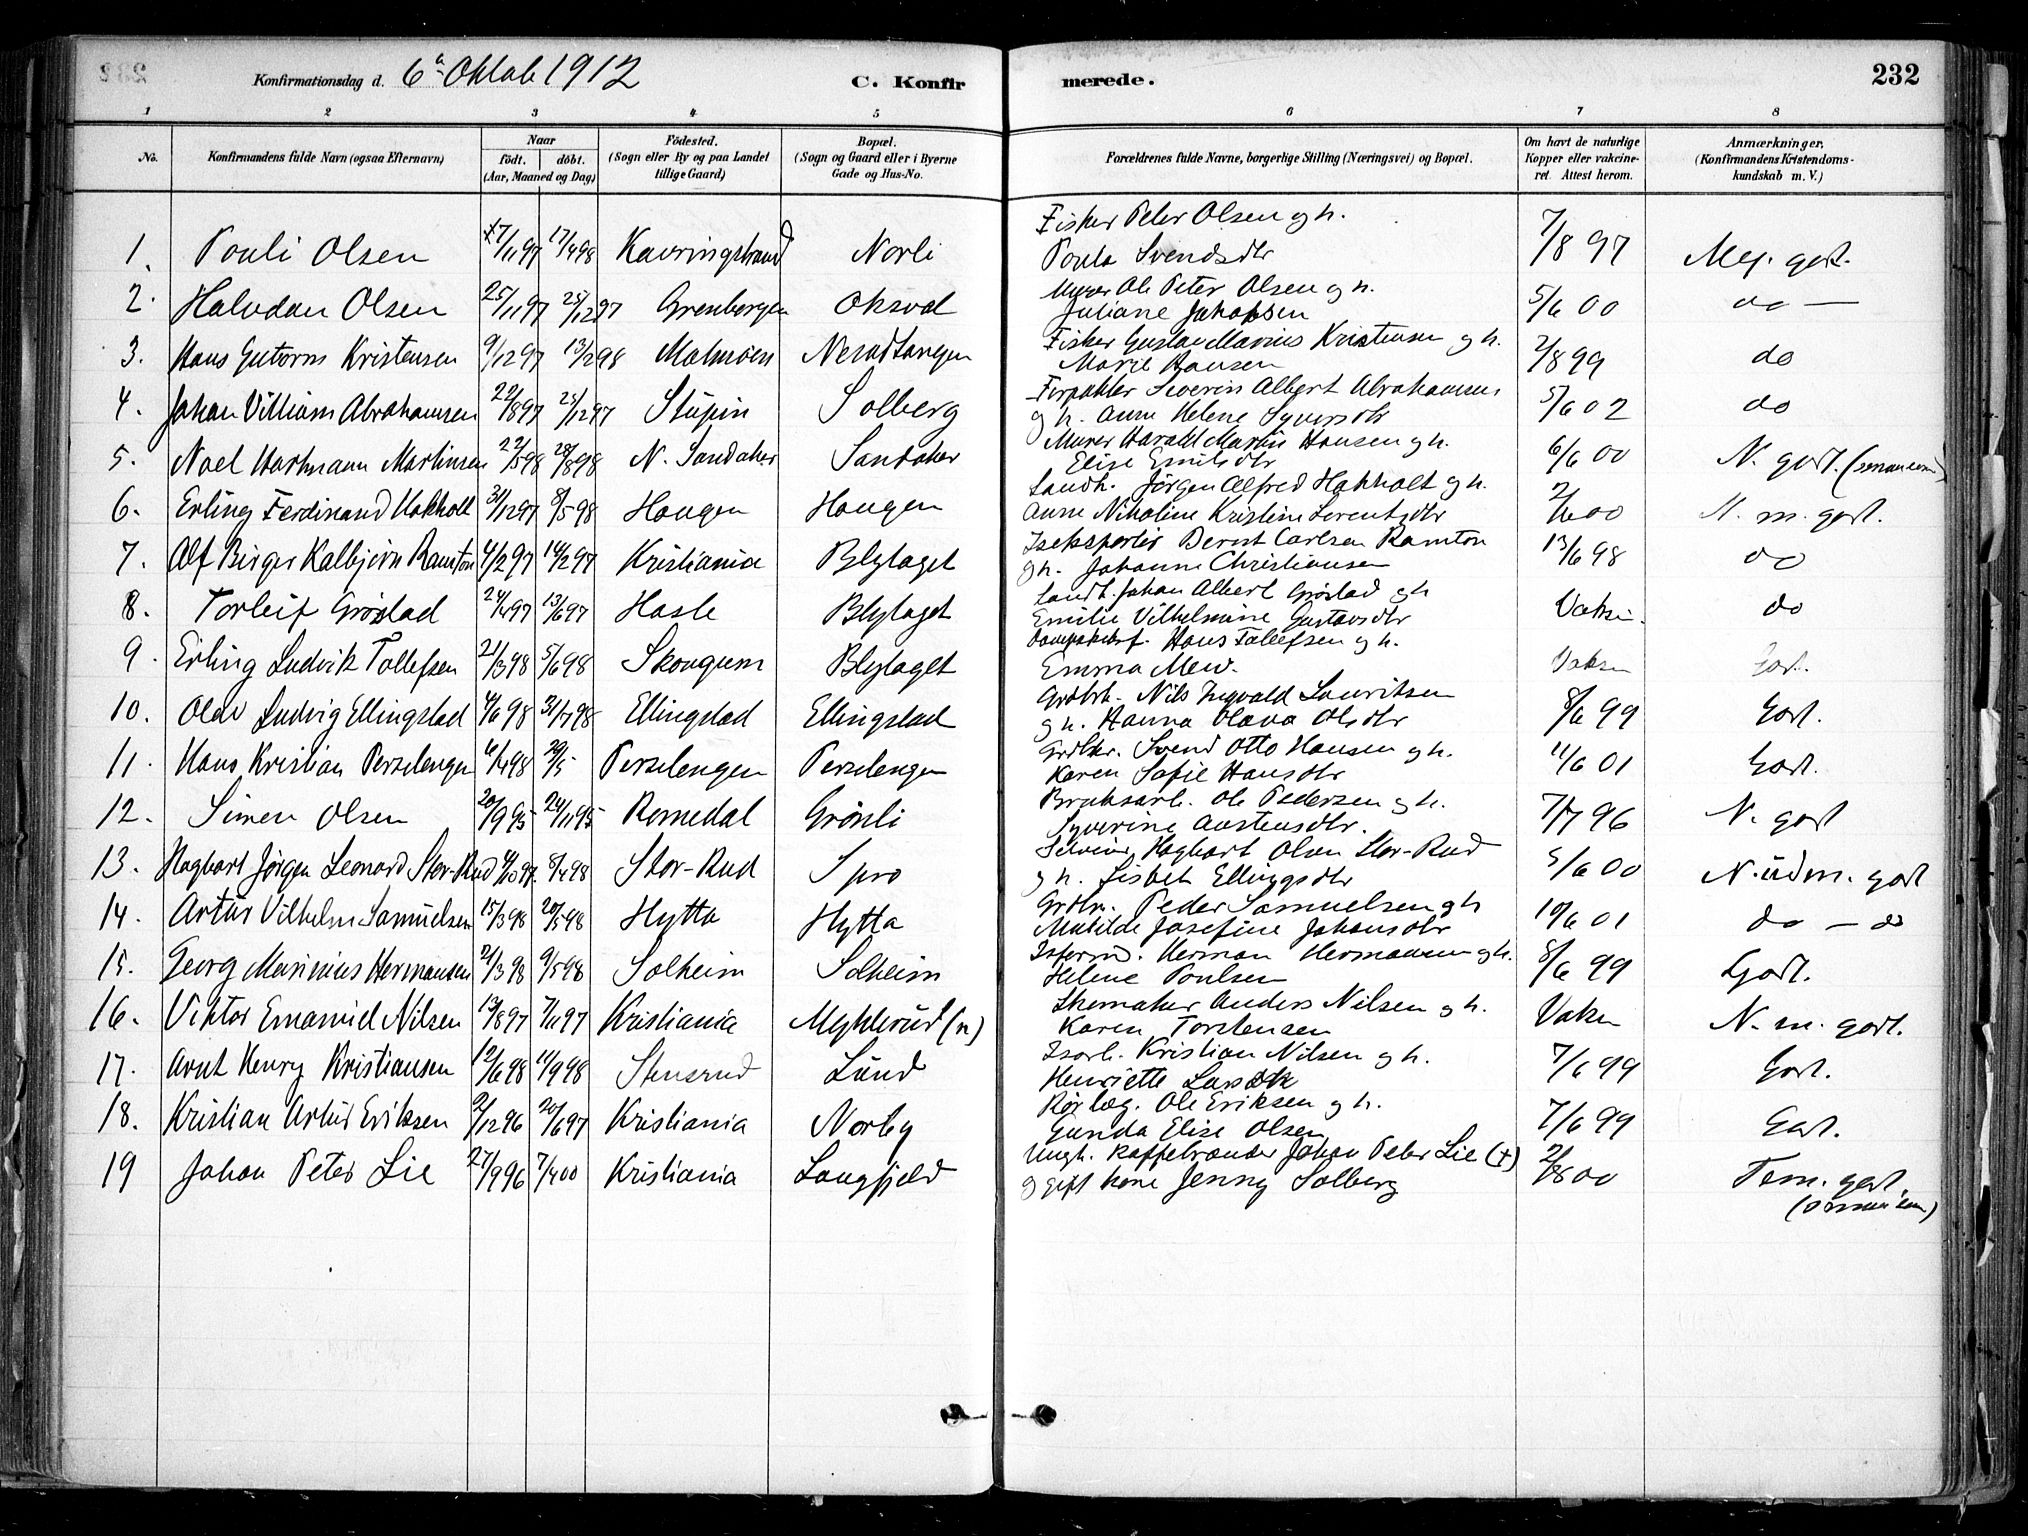 Konfirmationsdag d. 6te Oktob 1912
C. Konfirmerede.
232
1 2 3 4 5 6 7 8
No.
Konfirmandens fulde Navn (ogsaa Efternavn)
Naar
födt. döbt.
(Aar, Maaned og Dag)
Födested.
(Sogn eller By og paa Landet
tillige Gaard)
Bopæl.
(Sogn og Gaard eller i Byerne
Gade og Hus-No.
Forældrenes fulde Navne, borgerlige Stilling (Næringsvei) og Bopæl.
Om havt de naturlige
Kopper eller vakcine-
ret. Attest herom.
Anmærkninger.
(Konfirmandens Kristendoms-
kundskab m. V.)
Fisker Peter Olsen og h.
1. Pouli Olsen 17/11 97 17/4 98 Kavringstrand Norli Poula Svendsdtr 7/8 97 Meg. godt.
Murer Ole Peter Olsen og h.
2. Halvdan Olsen 25/11 97 25/12 97 Grenbergen Oksval Juliane Jakobsen 5/6 00 do —
Fisker Gustav Marius Kristensen og h.
3. Hans Gutorm Kristensen 9/12 97 13/2 98 Malmöen Nesodtangen Marie Hansen 2/8 99 do
Forpakter Severin Albert Abrahamsen
4. Johan Villiam Abrahamsen 22/8 97 25/12 97 Stüpin Solberg og h. Anne Helene Syversdtr 5/6 02 do
Murer Harald Martin Hansen og h.
5. Noel Hartmann Martinsen 22/5 98 28/8 98 N. Sandaker Sandaker Elise Emilsdtr 6/6 00 N. godt.
Landh. Jörgen Alfred Hakholt og h.
6. Erling Ferdinand Hakholt 31/12 97 8/5 98 Haugen Haugen Anne Nikoline Kristine Lorentzdtr 2/6 00 N. m. godt.
Iseksportör Bernt Carlsen Ramton
7. Alf Birger Kalbjörn Ramton 4/2 97 14/2 97 Kristiania Blylaget og h. Johanne Christiansen 13/6 98 do
Landh. Johan Albert Gröstad og h
8. Torleif Gröstad 24/4 97 13/6 97 Hasle Blylaget Emilie Vilhelmine Gustavsdtr Vaksin. do
Hans Tollefsen og h.
9. Erling Ludvik Tollefsen 21/3 98 5/6 98 Skougum Blylaget Emma Mew. Vaksin Godt.
Grdbr. Nils Ingvald Lauritsen
10. Olav Ludvig Ellingstad 4/6 98 31/7 98 Ellingstad Ellingstad og h. Hanna Olava Olsdtr 8/6 99 Godt.
Grdbr. Svend Otto Hansen og h.
11. Hans Kristian Perslengen 6/4 98 29/5 Perslengen Perslengen Karen Sofie Hansdtr 11/6 01 Godt.
Bruksarb. Ole Pedersen og h.
12. Simen Olsen 20/9 95 24/11 95 Romedal Grönli Syverine Austensdtr. 7/7 96 N. godt
Selveier Hagbart Olsen Stor-Rud
13. Hagbart Jörgen Leonard Stor-Rud 4/10 97. 8/4 98 Stor-Rud Spro og h. Lisbet Ellingsdtr 5/6 00 N. üdm. godt
Grdbr. Peder Samuelsen og h
14. Artür Vilhelm Samüelsen 15/3 98 20/5 98 Hytta Hytta Matilde Josefine Johansdtr 10/6 01 do — do
Herman Hermansen og h.
15. Georg Marinius Hermansen 21/3 98 9/5 98 Solheim Solheim Helene Poulsen 8/6 99 Godt.
Skomaker Anders Nilsen og h.
16. Viktor Emanuel Nilsen 13/8 97 7/11 97 Kristiania Myklerüd (n) Karen Torstensen Vaksin N. m. godt.
Isarb. Kristian Nilsen og h.
17. Arnt Henry Kristiansen 12/6 98 11/9 98 Stensrud Lünd Henriette Larsdtr 7/6 99 Godt.
Rörlæg. Ole Eriksen og h.
18. Kristian Artür Eriksen 9/12 96 20/6 97 Kristiania Norby Gunda Elise Olsen 7/6 99 Godt.
Ungk. Kaffebrænder Johan Peter Lie (†)
19 Johan Peter Lie 27/9 96 7/4 00 Kristiania Langfjeld og gift kone Jenny Solberg 2/8 00 Tem. godt.